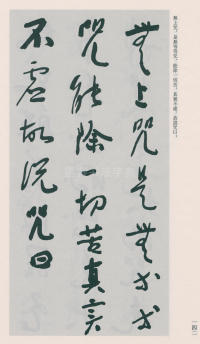 無上咒，是無等等咒，能除一切苦，真實不虛，故說咒曰，
無上咒是無等等
咒能除一切苦真實
不虛故說咒曰
一四二